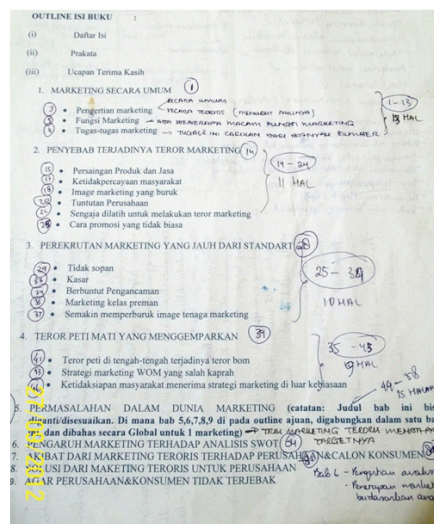 OUTLINE ISI BUKU :
(i) Daftar Isi
(ii) Prakata
(iii) Ucapan Terima Kasih
1. MARKETING SECARA UMUM 1
• Pengertian marketing SECARA UMUM
SECARA TEORITIS (MENURUT AHLINYA)
• Fungsi Marketing → ADA BEBERAPA MACAM FUNGSI MARKETING
• Tugas-tugas marketing → TUGAS2 INI CARIKAN DARI BANYAK SUMBER
1-13
13 HAL
2. PENYEBAB TERJADINYA TEROR MARKETING 14
15 • Persaingan Produk dan Jasa
17 • Ketidakpercayaan masyarakat
18 • Image marketing yang buruk
• Tuntutan Perusahaan
• Sengaja dilatih untuk melakukan teror marketing
• Cara promosi yang tidak biasa
14-24
11 HAL
3. PEREKRUTAN MARKETING YANG JAUH DARI STANDART
• Tidak sopan
• Kasar
• Berbuntut Pengancaman
• Marketing kelas preman
37 • Semakin memperburuk image tenaga marketing
25-34
10 HAL
4. TEROR PETI MATI YANG MENGGEMPARKAN 39
41 • Teror peti di tengah-tengah terjadinya teror bom
• Strategi marketing WOM yang salah kaprah
• Ketidaksiapan masyarakat menerima strategi marketing di luar kebiasaan
35-43
HAL
44-58
15 HALAM
5. PERMASALAHAN DALAM DUNIA MARKETING (catatan: Judul bab ini bis
diganti/disesuaikan. Di mana bab 5,6,7,8,9 di pada outline ajuan, digabungkan dalam satu ba
dan dibahas secara Global untuk 1 marketing) → TRIK MARKETING TERORIS
TARGETNYA
6. PENGARUH MARKETING TERHADAP ANALISIS SWOT
7. AKIBAT DARI MARKETING TERORIS TERHADAP PERUSAHAAN&CALON KONSUMEN
8. SOLUSI DARI MAKETING TERORIS UNTUK PERUSAHAAN
9. AGAR PERUSAHAAN&KONSUMEN TIDAK TERJEBAK
Bab 6 -